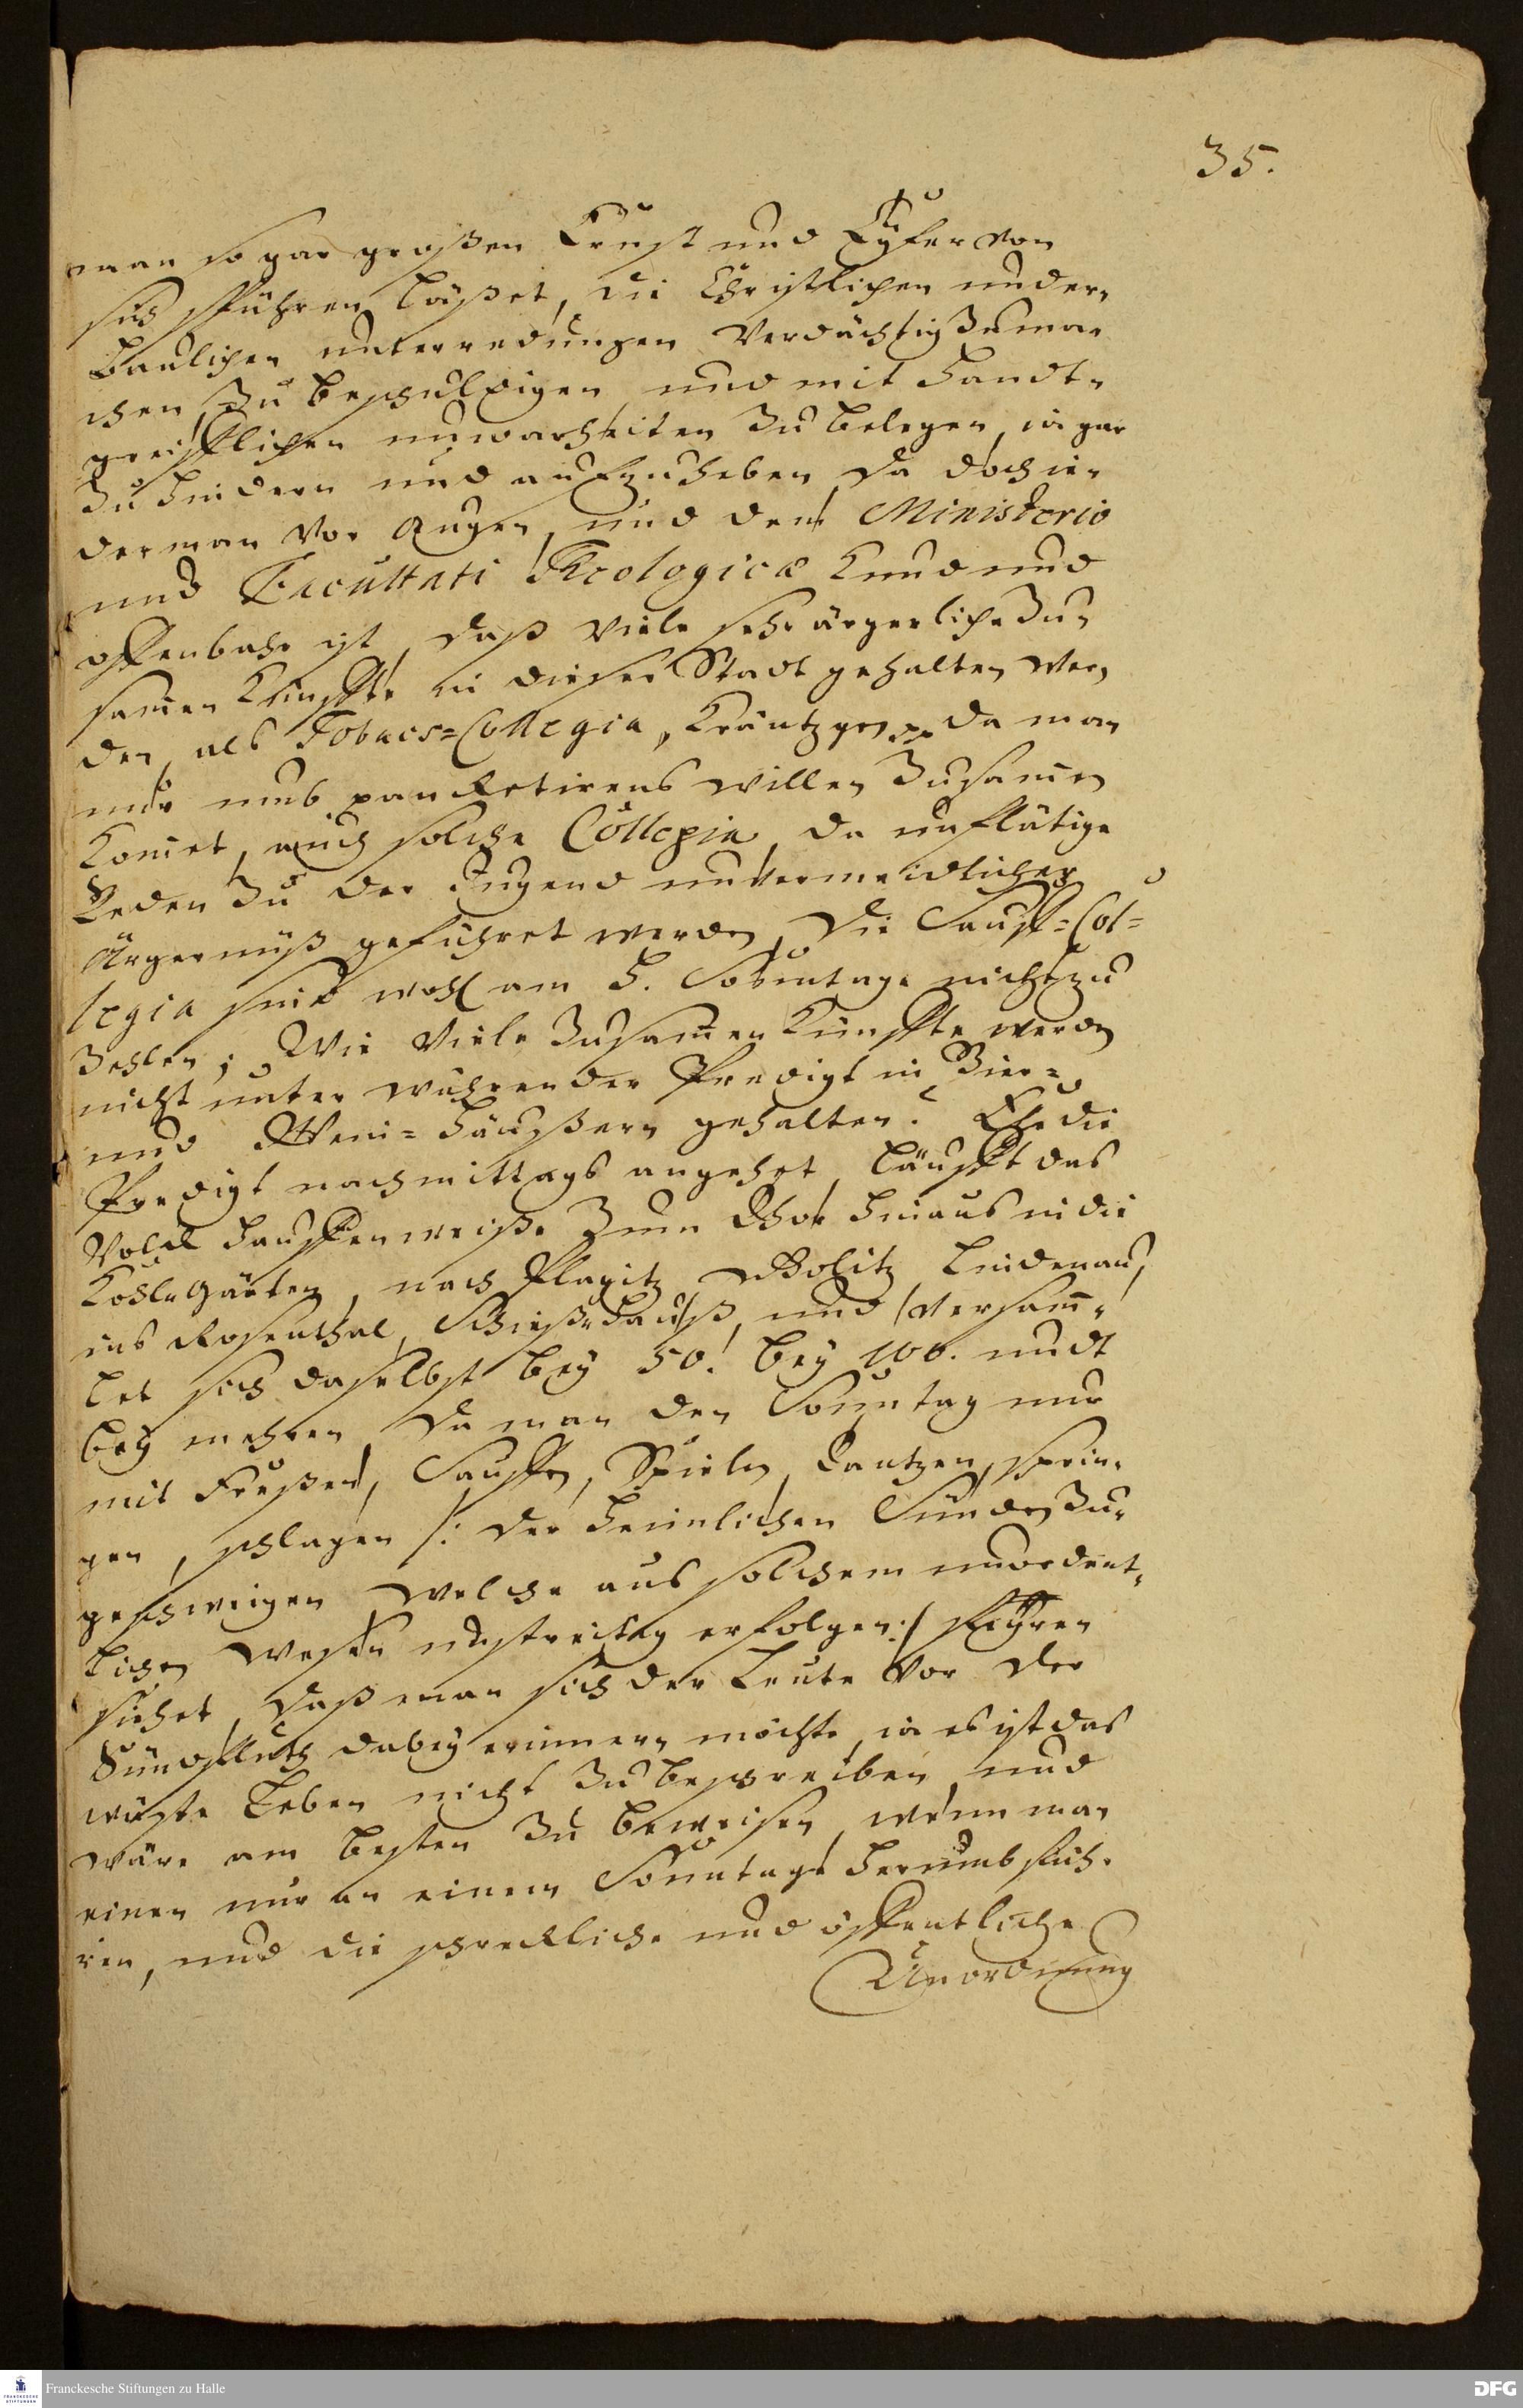 35.
man so gar großen Ernst und Eyfer von
sich spühren läßet, die Christlichen und er-
baulichen unterredungen verdächtig zu ma-
chen, zu beschuldigen und mit handt-
greifflichen unwarheiten zu belegen, ja gar
zu hindern und aufzuheben, da doch je-
derman vor Augen, und dem Ministerio
und Facultati Theologicæ kund und
offenbahr ist, daß viele sehr ärgerliche Zu-
sam̅en Künffte in dieser Stadt gehalten wer-
den, als Tobacs=Collegia, Kräntzgen, da man
nur umb pancketirens willen zusam̅en
kom̅et, auch solche Collegia, da unflätige
Reden zu der Jugend unvermeidlicher
Ärgernüß geführet werden, die Sauff=Col=
legia sind wohl am H. Sontage nicht zu
zehlen; Wie viele Zusam̅en Künffte werden
nicht unter währender Predigt in Bier=
und Wein=Häußern gehalten? Ehe die
Predigt nachmittags angehet, läufft das
Volck hauffenweiße zum Thor hinaus in die
Kohlgärten, nach Plagitz, Golitz, Lindenau,
ins Rosenthal, Schießhauß, und versam̅-
let sich daselbst bey 50. bey 100. undt
bey mehren, da man den Son̅tag nur
mit Freßen, Sauffen, Spielen, Tantzen, sprin-
gen, schlagen /: der heimlichen Sünden zu-
geschweigen, welche aus solchem unordent-
lichen wesen unstreitig erfolgen:/ feyren
siehet, daß man sich der Leute vor der
Sündfluth dabey erinnern möchte, ja es ist das
wüste Leben nicht zu beschreiben, und
wäre am besten zu beweisen, wenn man
einen nur an einem Sontage herumb füh-
ren, und die schreckliche und öffentliche
Unordnung
Franckesche Stiftungen zu Halle
DFG